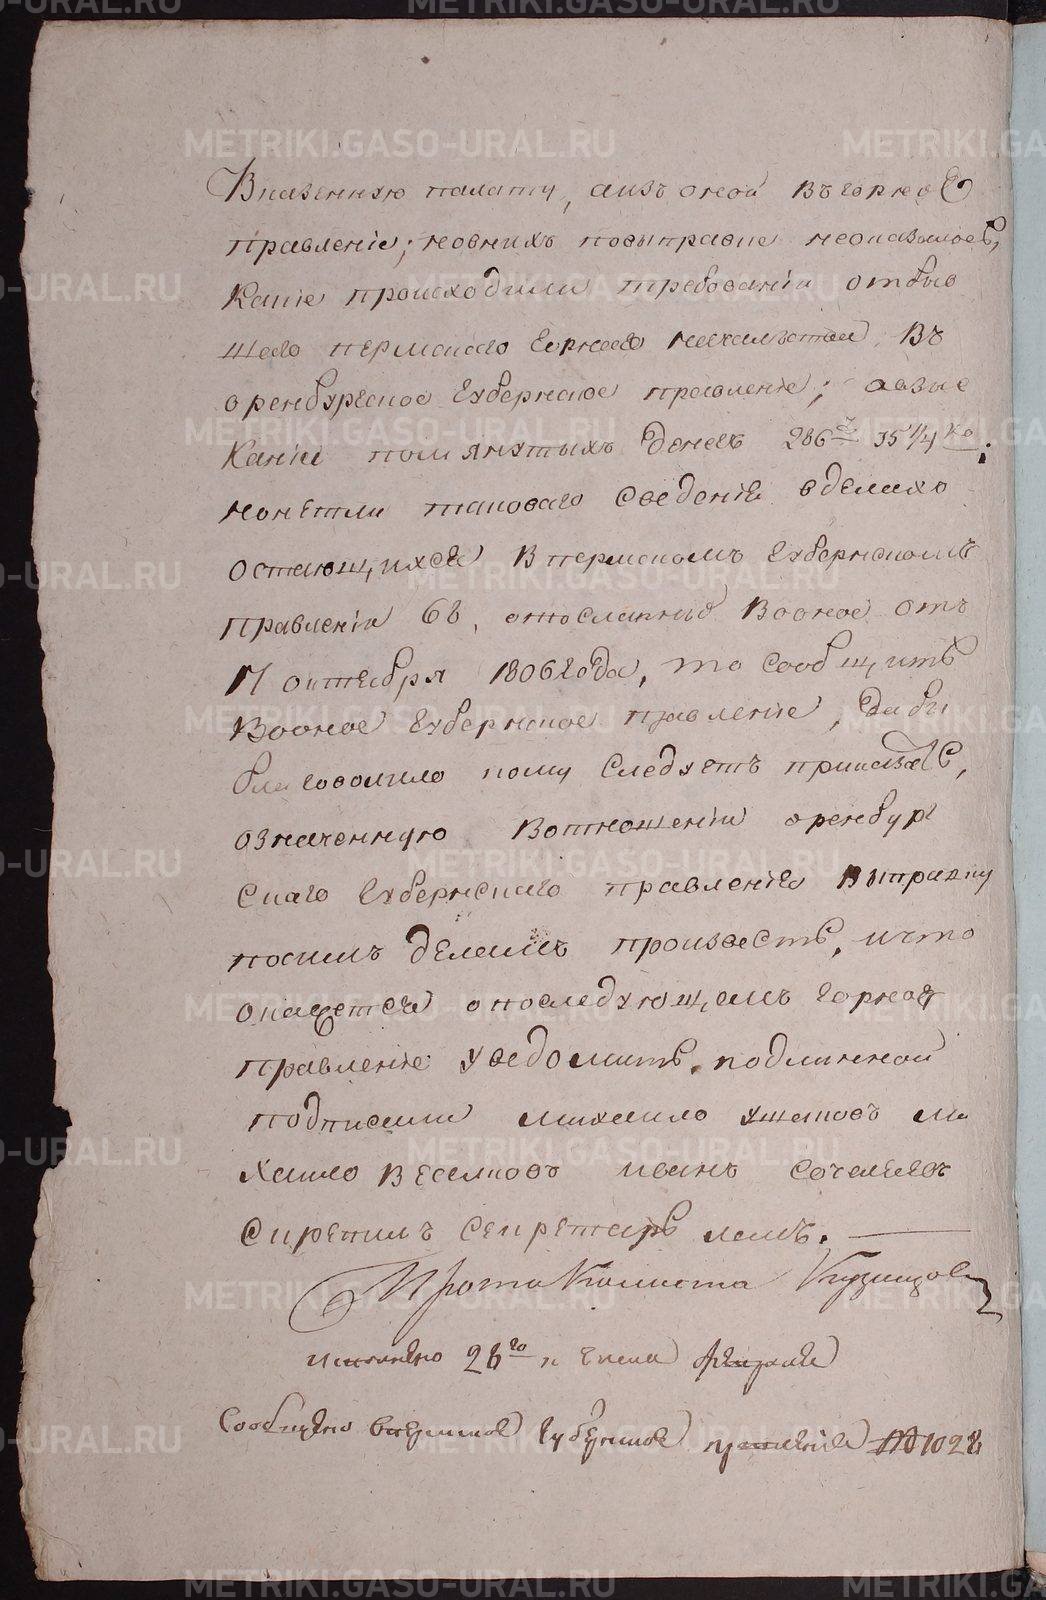 Вказенную палату, аизъ оной въ горное
правленіе; новнихъ повыправке неоказалось,
какіе происходили требованіи отбыв
шаго пермскаго горнаго начальства въ
оренбургское губернское правленіе; овзыс
каніи помянутыхъ денегъ 286 35 1/4 ко.;
нонетли таковаго сведенія вделахъ
остающихся впермскомъ губернскомъ
правленіи бъ, опосланныя воное отъ
17 октября 1806 года, то сообщить
воное губернское правленіе, дабы
благоволило кому следуетъ приказать,
означенную вотношеніи оренбург
скаго губернскаго правленія выправку
посимъ деламъ произвесть, ичто
окажется опоследующемъ горное
правленіе уведомить, подлинной
подписали михаило ушаковъ ми
хаило веселковъ иванъ
скрепилъ секретарь
Протоколиста Кузнецов
исполнено 28го числа февраля
Сообщено впермское губернское правленіе № 1028